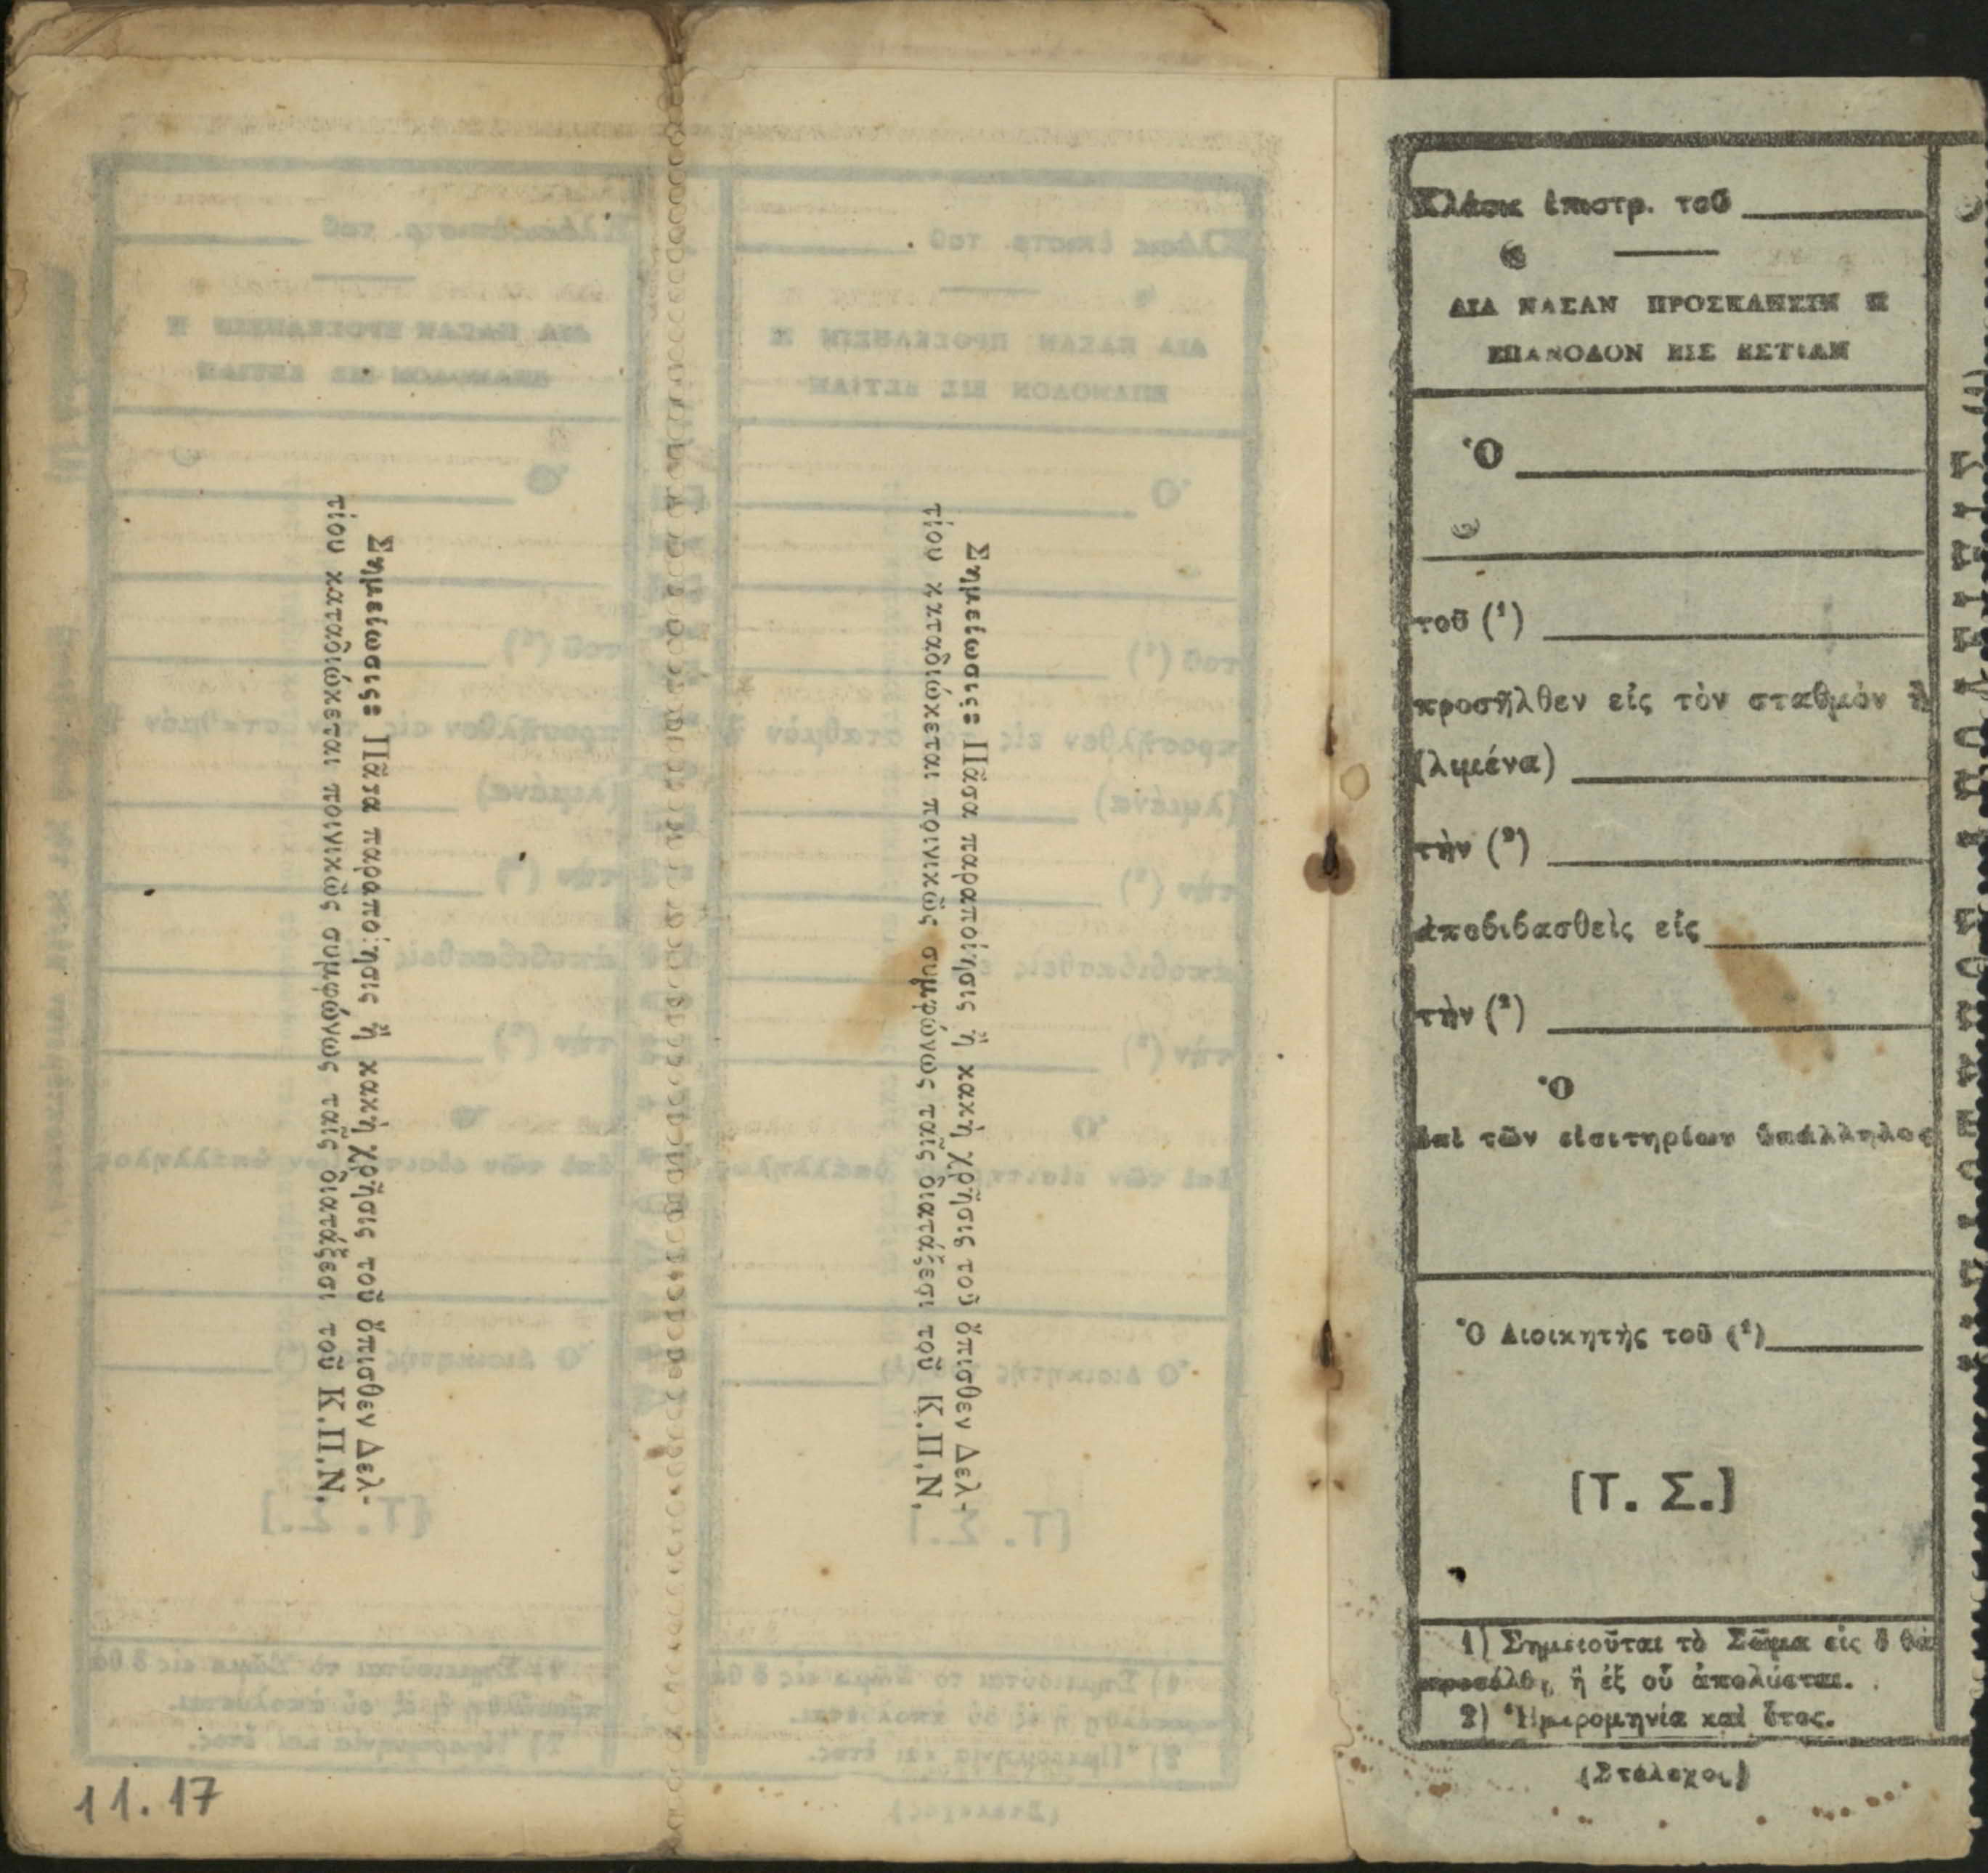 Σημείωσις: Πᾶσα παραποίησις ἢ κακὴ χρῆσις τοῦ ὄπισθεν Δελ-
τίου καταδιώκεται ποινικῶς συμφώνως ταῖς διατάξεσι τοῦ Κ.Π.Ν.
Σημείωσις: Πᾶσα παραποίησις ἢ κακὴ χρῆσις τοῦ ὄπισθεν Δελ-
τίου καταδιώκεται ποινικῶς συμφώνως ταῖς διατάξεσι τοῦ Κ.Π.Ν.
11.17
Κλάσις ἐπιστρ. τοῦ
ΔΙΑ ΠΑΣΑΝ ΠΡΟΣΚΛΗΣΙΝ Η
ΕΠΑΝΟΔΟΝ ΕΙΣ ΕΣΤΙΑΝ
Ὁ
τοῦ (¹)
προσῆλθεν εἰς τὸν σταθμὸν ἢ
(λιμένα)
τὴν (²)
ἀποβιβασθεὶς εἰς
τὴν (²)
Ὁ
ἐπὶ τῶν εἰσιτηρίων ὑπάλληλος
Ὁ Διοικητὴς τοῦ (¹)
[Τ. Σ.]
1) Σημειοῦται τὸ Σῶμα εἰς ὃ θὰ
προσέλθῃ ἢ ἐξ οὗ ἀπολύεται.
2) Ἡμερομηνία καὶ ἔτος.
(Στέλεχος)